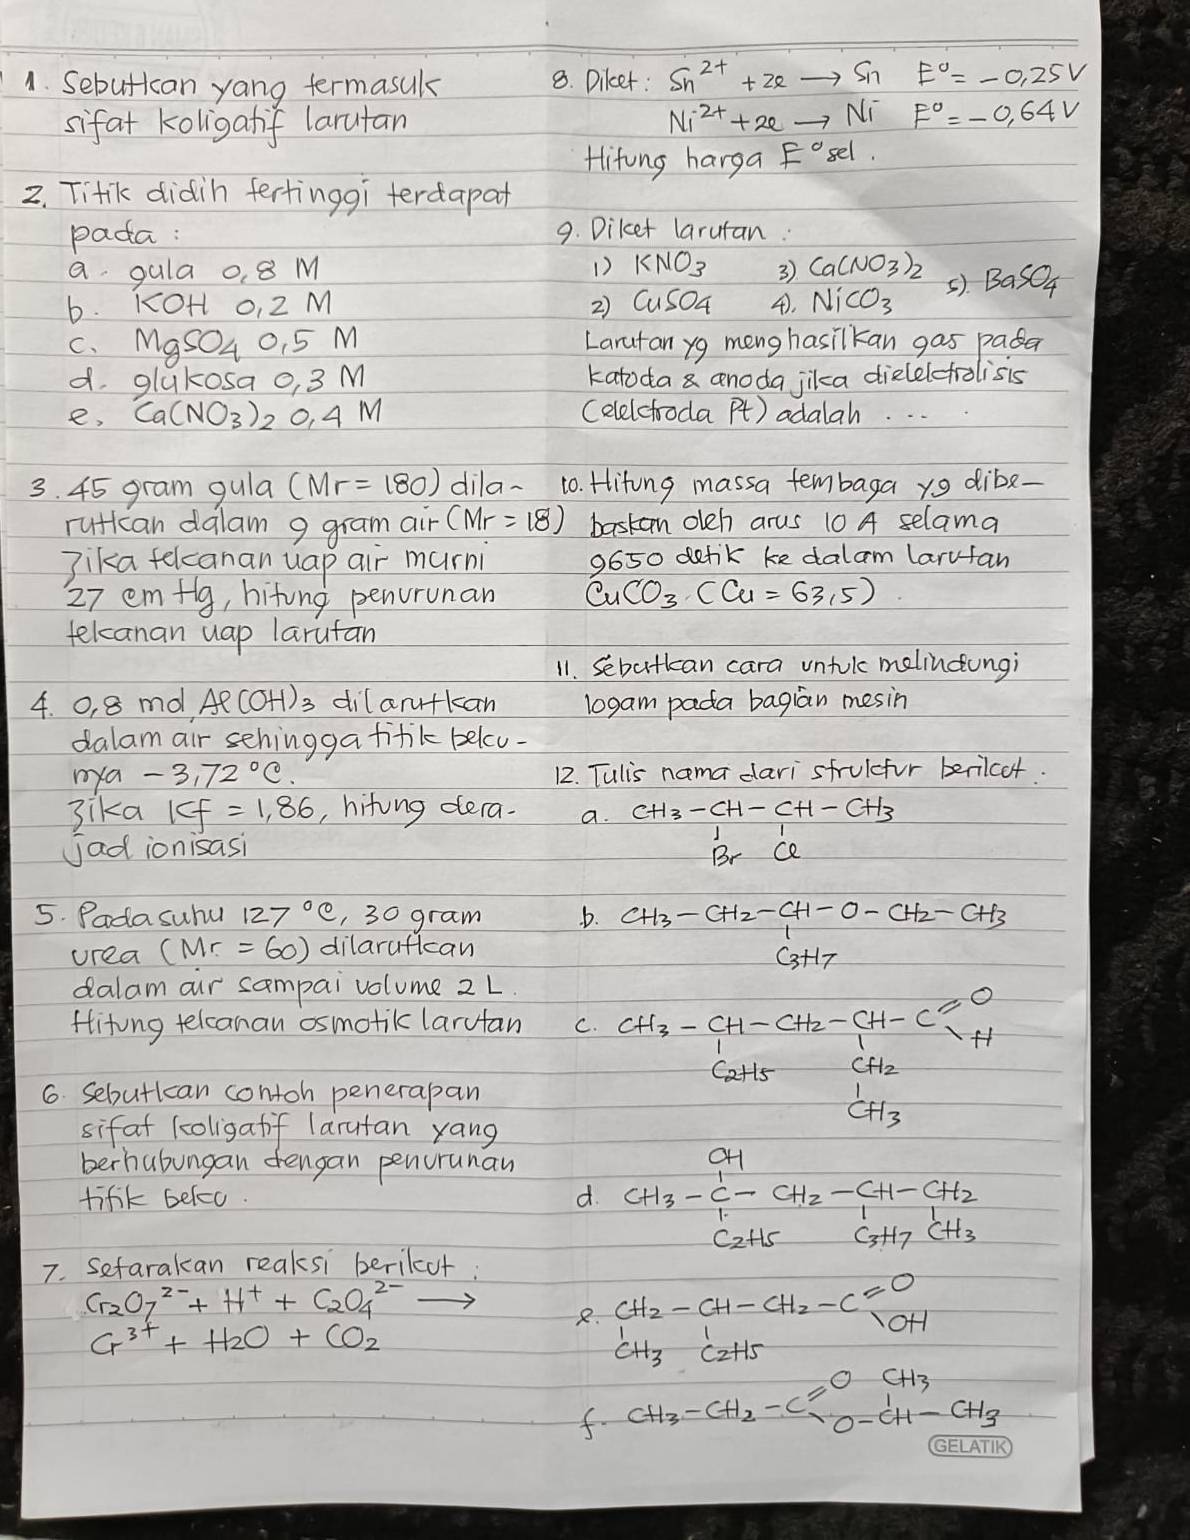 1. Sebutkan yang termasuk
sifat koligatif larutan
2. Titik didih tertinggi terdapat
pada :
a. gula 0,8 M
b. KOH 0,2 M
c. MgSO4 0,5 M
d. glukosa 0,3 M
e. Ca(NO3)2 0,4 M
3. 45 gram gula (Mr = 180) dila-
rutkan dalam 9 gram air (Mr = 18)
Jika tekanan uap air murni
27 cm Hg, hitung penurunan
tekanan uap larutan
4. 0,8 mol Al(OH)3 dilarutkan
dalam air sehingga titik beku-
nya -3,72 °C.
Jika Kf = 1,86, hitung dera-
jad ionisasi
5. Pada suhu 127 °C, 30 gram
urea (Mr. = 60) dilarutkan
dalam air sampai volume 2 L.
Hitung tekanan osmotik larutan
6. Sebutkan contoh penerapan
sifat koligatif larutan yang
berhubungan dengan penurunan
titik beku.
7. Setarakan reaksi berikut :
Cr2O7^2- + H^+ + C2O4^2- →
Cr^3+ + H2O + CO2
8. Diket : Sn^2+ + 2e → Sn E° = -0,25 V
Ni^2+ + 2e → Ni E° = -0,64 V
Hitung harga E° sel.
9. Diket larutan :
1) KNO3 3) Ca(NO3)2 5). BaSO4
2) CuSO4 4). NiCO3
Larutan yg menghasilkan gas pada
katoda & anoda jika dielektrolisis
(elektroda Pt) adalah ....
10. Hitung massa tembaga yg dibe-
baskan oleh arus 10 A selama
9650 detik ke dalam larutan
CuCO3. (Cu = 63,5).
11. Sebutkan cara untuk melindungi
logam pada bagian mesin
12. Tulis nama dari struktur berikut :
a. CH3 - CH - CH - CH3
Br Cl
b. CH3 - CH2 - CH - O - CH2 - CH3
C3H7
c. CH3 - CH - CH2 - CH - C = O
H
C2H5 CH2
CH3
OH
d. CH3 - C - CH2 - CH - CH2
C2H5 C3H7 CH3
e. CH2 - CH - CH2 - C = O
OH
CH3 C2H5
f. CH3 - CH2 - C = O CH3
O - CH - CH3
GELATIK